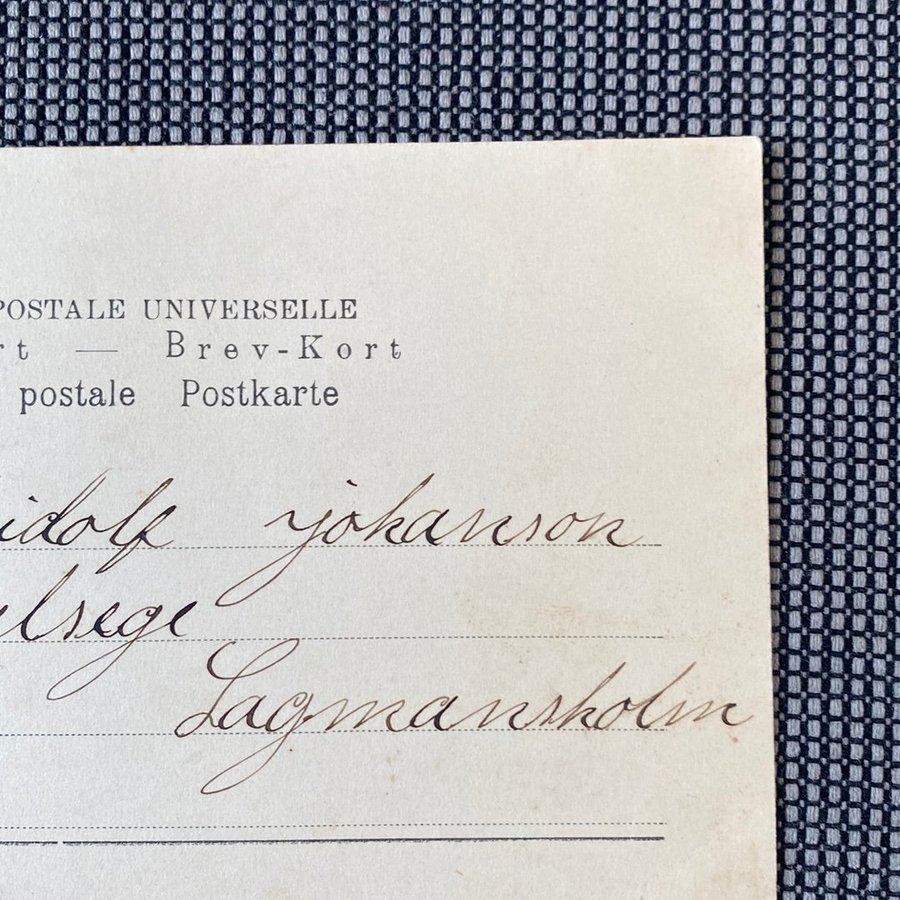 POSTALE UNIVERSELLE
rt — Brev-Kort
postale Postkarte
idolf johanson
lsege
Lagmansholm